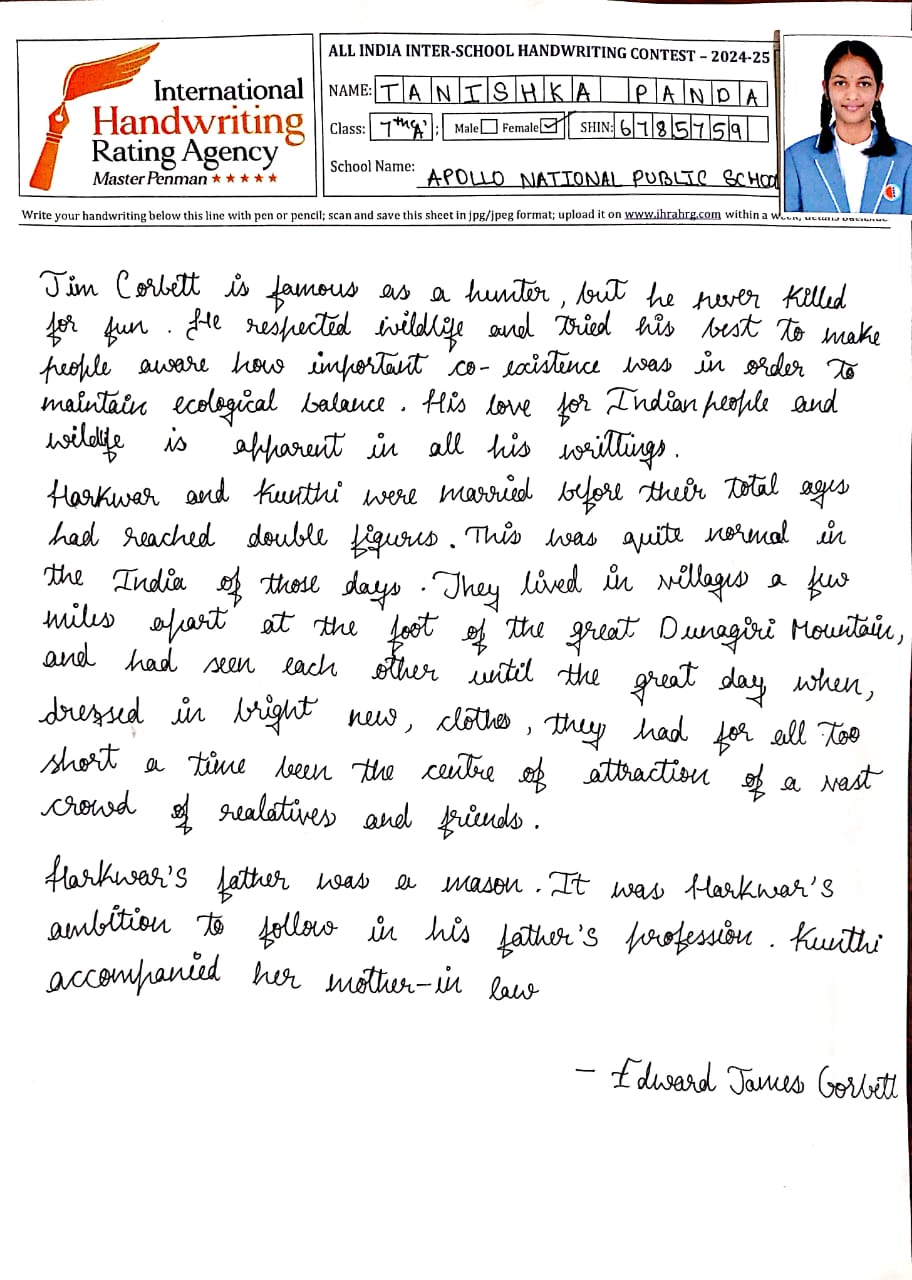 International
Handwriting
Rating Agency
Master Penman ★★★★★
ALL INDIA INTER-SCHOOL HANDWRITING CONTEST – 2024-25
NAME: TANISHKA PANDA
Class: 7th 'A' ; Male Female ✓ SHIN: 6785759
School Name: APOLLO NATIONAL PUBLIC SCHOO
Write your handwriting below this line with pen or pencil; scan and save this sheet in jpg/jpeg format; upload it on www.ihrahrg.com within a
Jim Corbett is famous as a hunter, but he never killed
for fun. He respected wildlife and tried his best to make
people aware how important co-existence was in order to
maintain ecological balance. His love for Indian people and
wildlife is apparent in all his writtings.
Harkwar and Kunthi were married before their total ages
had reached double figures. This was quite normal in
the India of those days. They lived in villages a few
miles apart at the foot of the great Dunagiri Mountain,
and had seen each other until the great day when,
dressed in bright new, clothes, they had for all too
short a time been the centre of attraction of a vast
crowd of realatives and friends.
Harkwar's father was a mason. It was Harkwar's
ambition to follow in his father's profession. Kunthi
accompanied her mother-in law
– Edward James Corbett